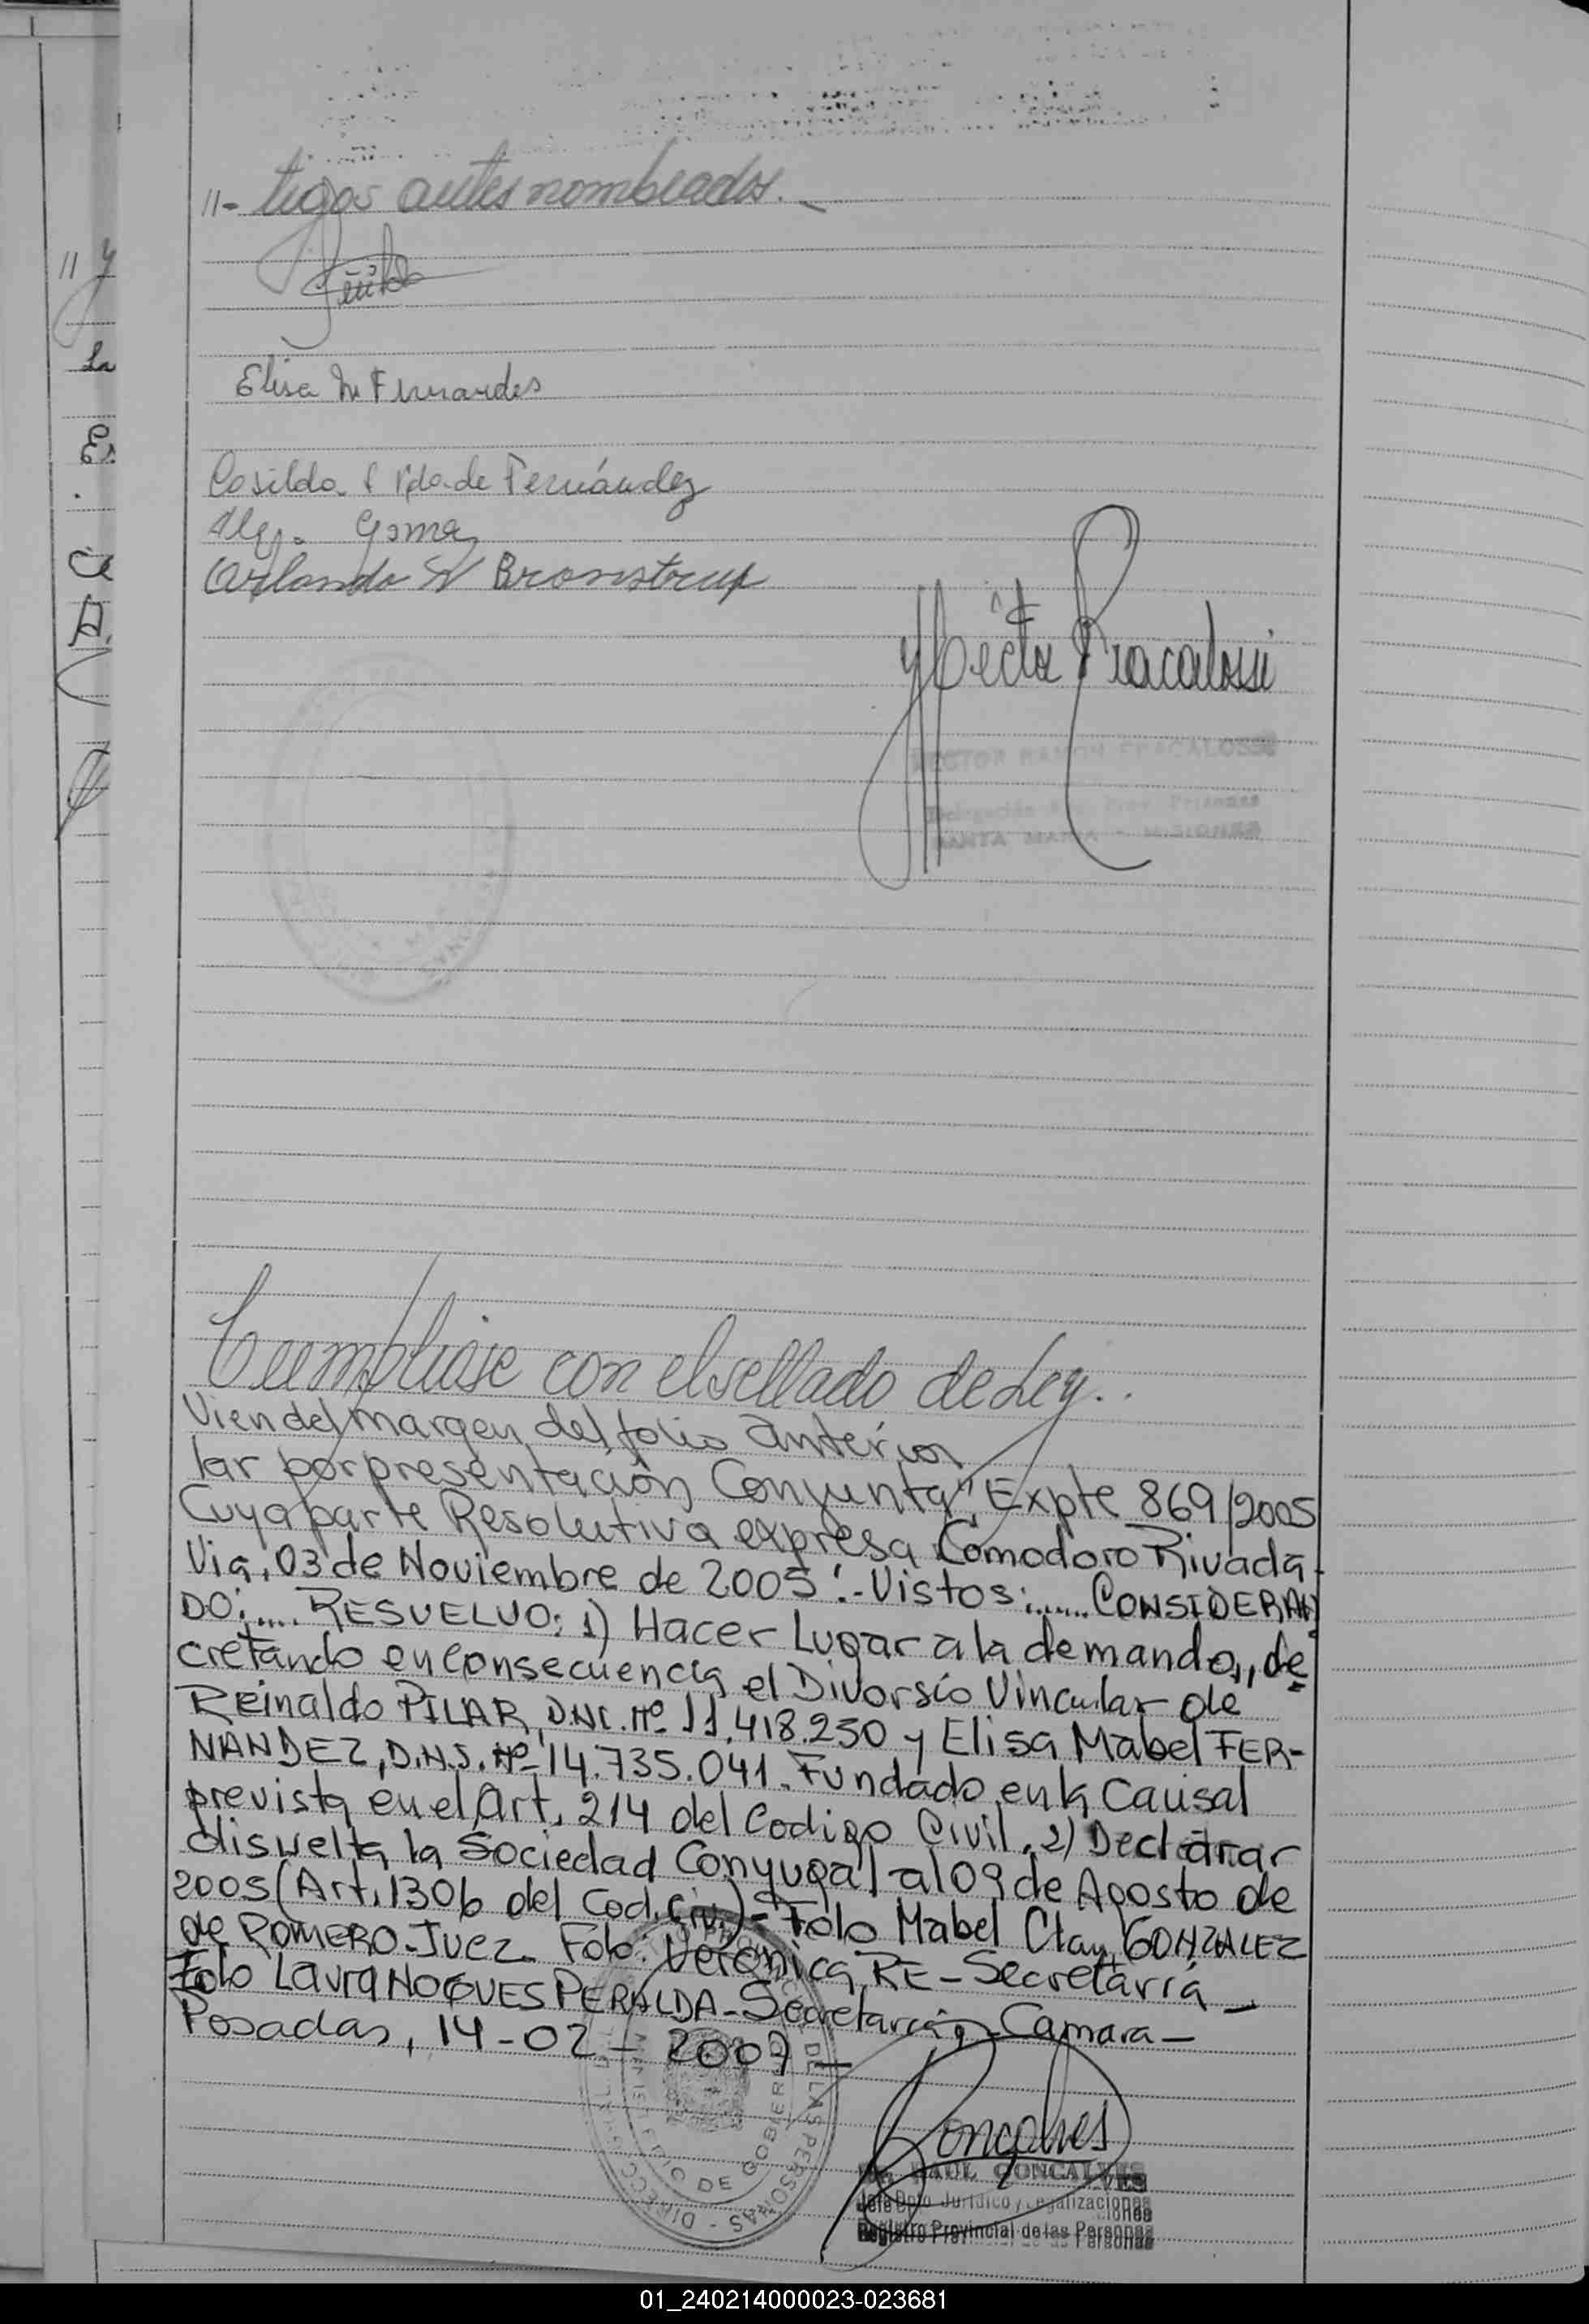 11- tigos antes nombrados. -
Elisa M Fernandes
Casilda f Vda de Fernández
Gomez
Orlando N Bronstrup
Hector Fracalossi
HECTOR RAMON FRACALOSSI
Delegación Reg. Prov. Personas
SANTA MARIA - MISIONES
Cumpliase con el sellado de Ley..
Vien del margen del folio anterior
lar por presentación Conjunta", Expte 869/2005
Cuya parte Resolutiva expresa Comodoro Rivada-
Via, 03 de Noviembre de 2005 :- Vistos:...... CONSIDERAN
DO:.... RESUELVO: 1) Hacer Lugar a la demanda,, de
cretando en Consecuencia el Divorsio Vincular de
Reinaldo PILAR, D.N.I. Nº 11.418.250 y Elisa Mabel FER-
NANDEZ, D.N.I. Nº 14.735.041. Fundado en la Causal
prevista en el Art. 214 del Codigo Civil. 2) Declarar
disuelta la Sociedad Conyugal al 09 de Agosto de
2005 (Art. 1306 del Cod. Civ.) - Fdo Mabel Clay GONZALEZ
de ROMERO - Juez. Fdo: Veronica RE - Secretaria
Fdo Laura NOGUES PERALDA - Secretaria, Camara -
Posadas, 14 - 02 - 2007 -
Goncalves
Dr. RAUL GONCALVES
Jefe Dpto Jurídico y Legalizaciones
Registro Provincial de las Personas
DE LAS PERSONAS - DIRECC
MINISTERIO DE GOBIERNO
01_240214000023-023681